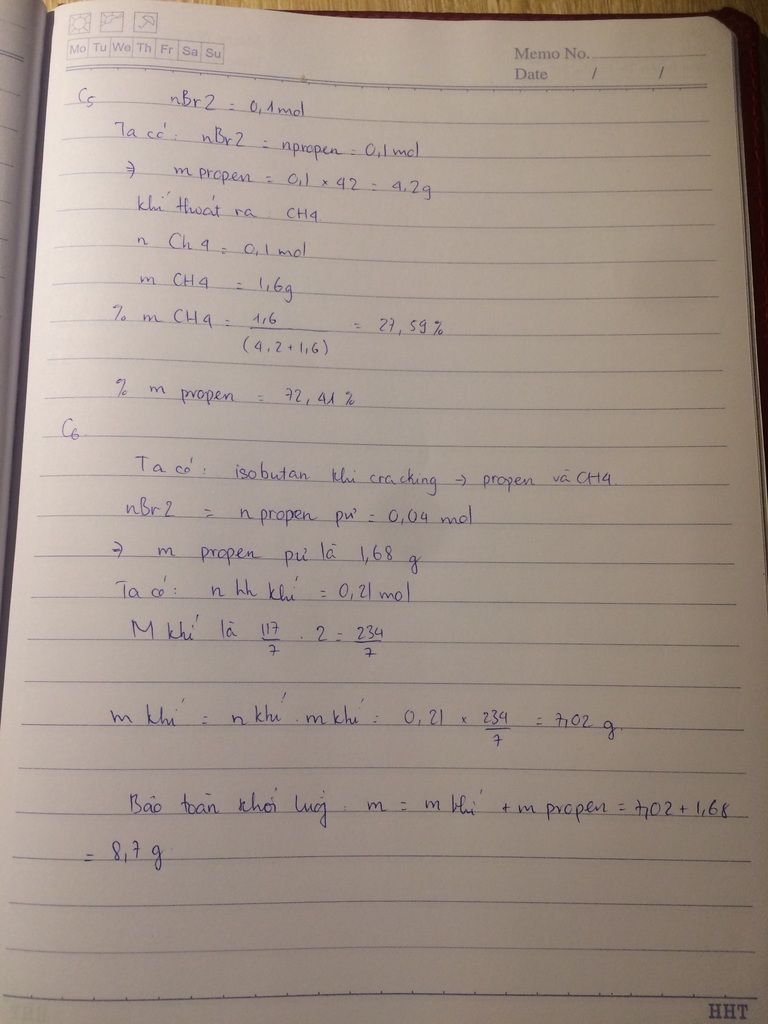 Mo Tu We Th Fr Sa Su
Memo No.
Date / /
C5 nBr2 = 0,1mol
Ta có: nBr2 = npropen = 0,1mol
⇒ m propen = 0,1 × 42 = 4,2g
khí thoát ra CH4
n Ch4 = 0,1mol
m CH4 = 1,6g
% m CH4 = 1,6 / (4,2+1,6) = 27,59%
% m propen = 72,41%
C6
Ta có: isobutan khi cracking → propen và CH4.
nBr2 = n propen pư = 0,04 mol
⇒ m propen pư là 1,68 g
Ta có: n hh khí = 0,21mol
M khí là 117/7 . 2 = 234/7
m khí = n khí . m khí = 0,21 × 234/7 = 7,02 g.
Bảo toàn khối lượg: m = m khí + m propen = 7,02 + 1,68
= 8,7 g
HHT